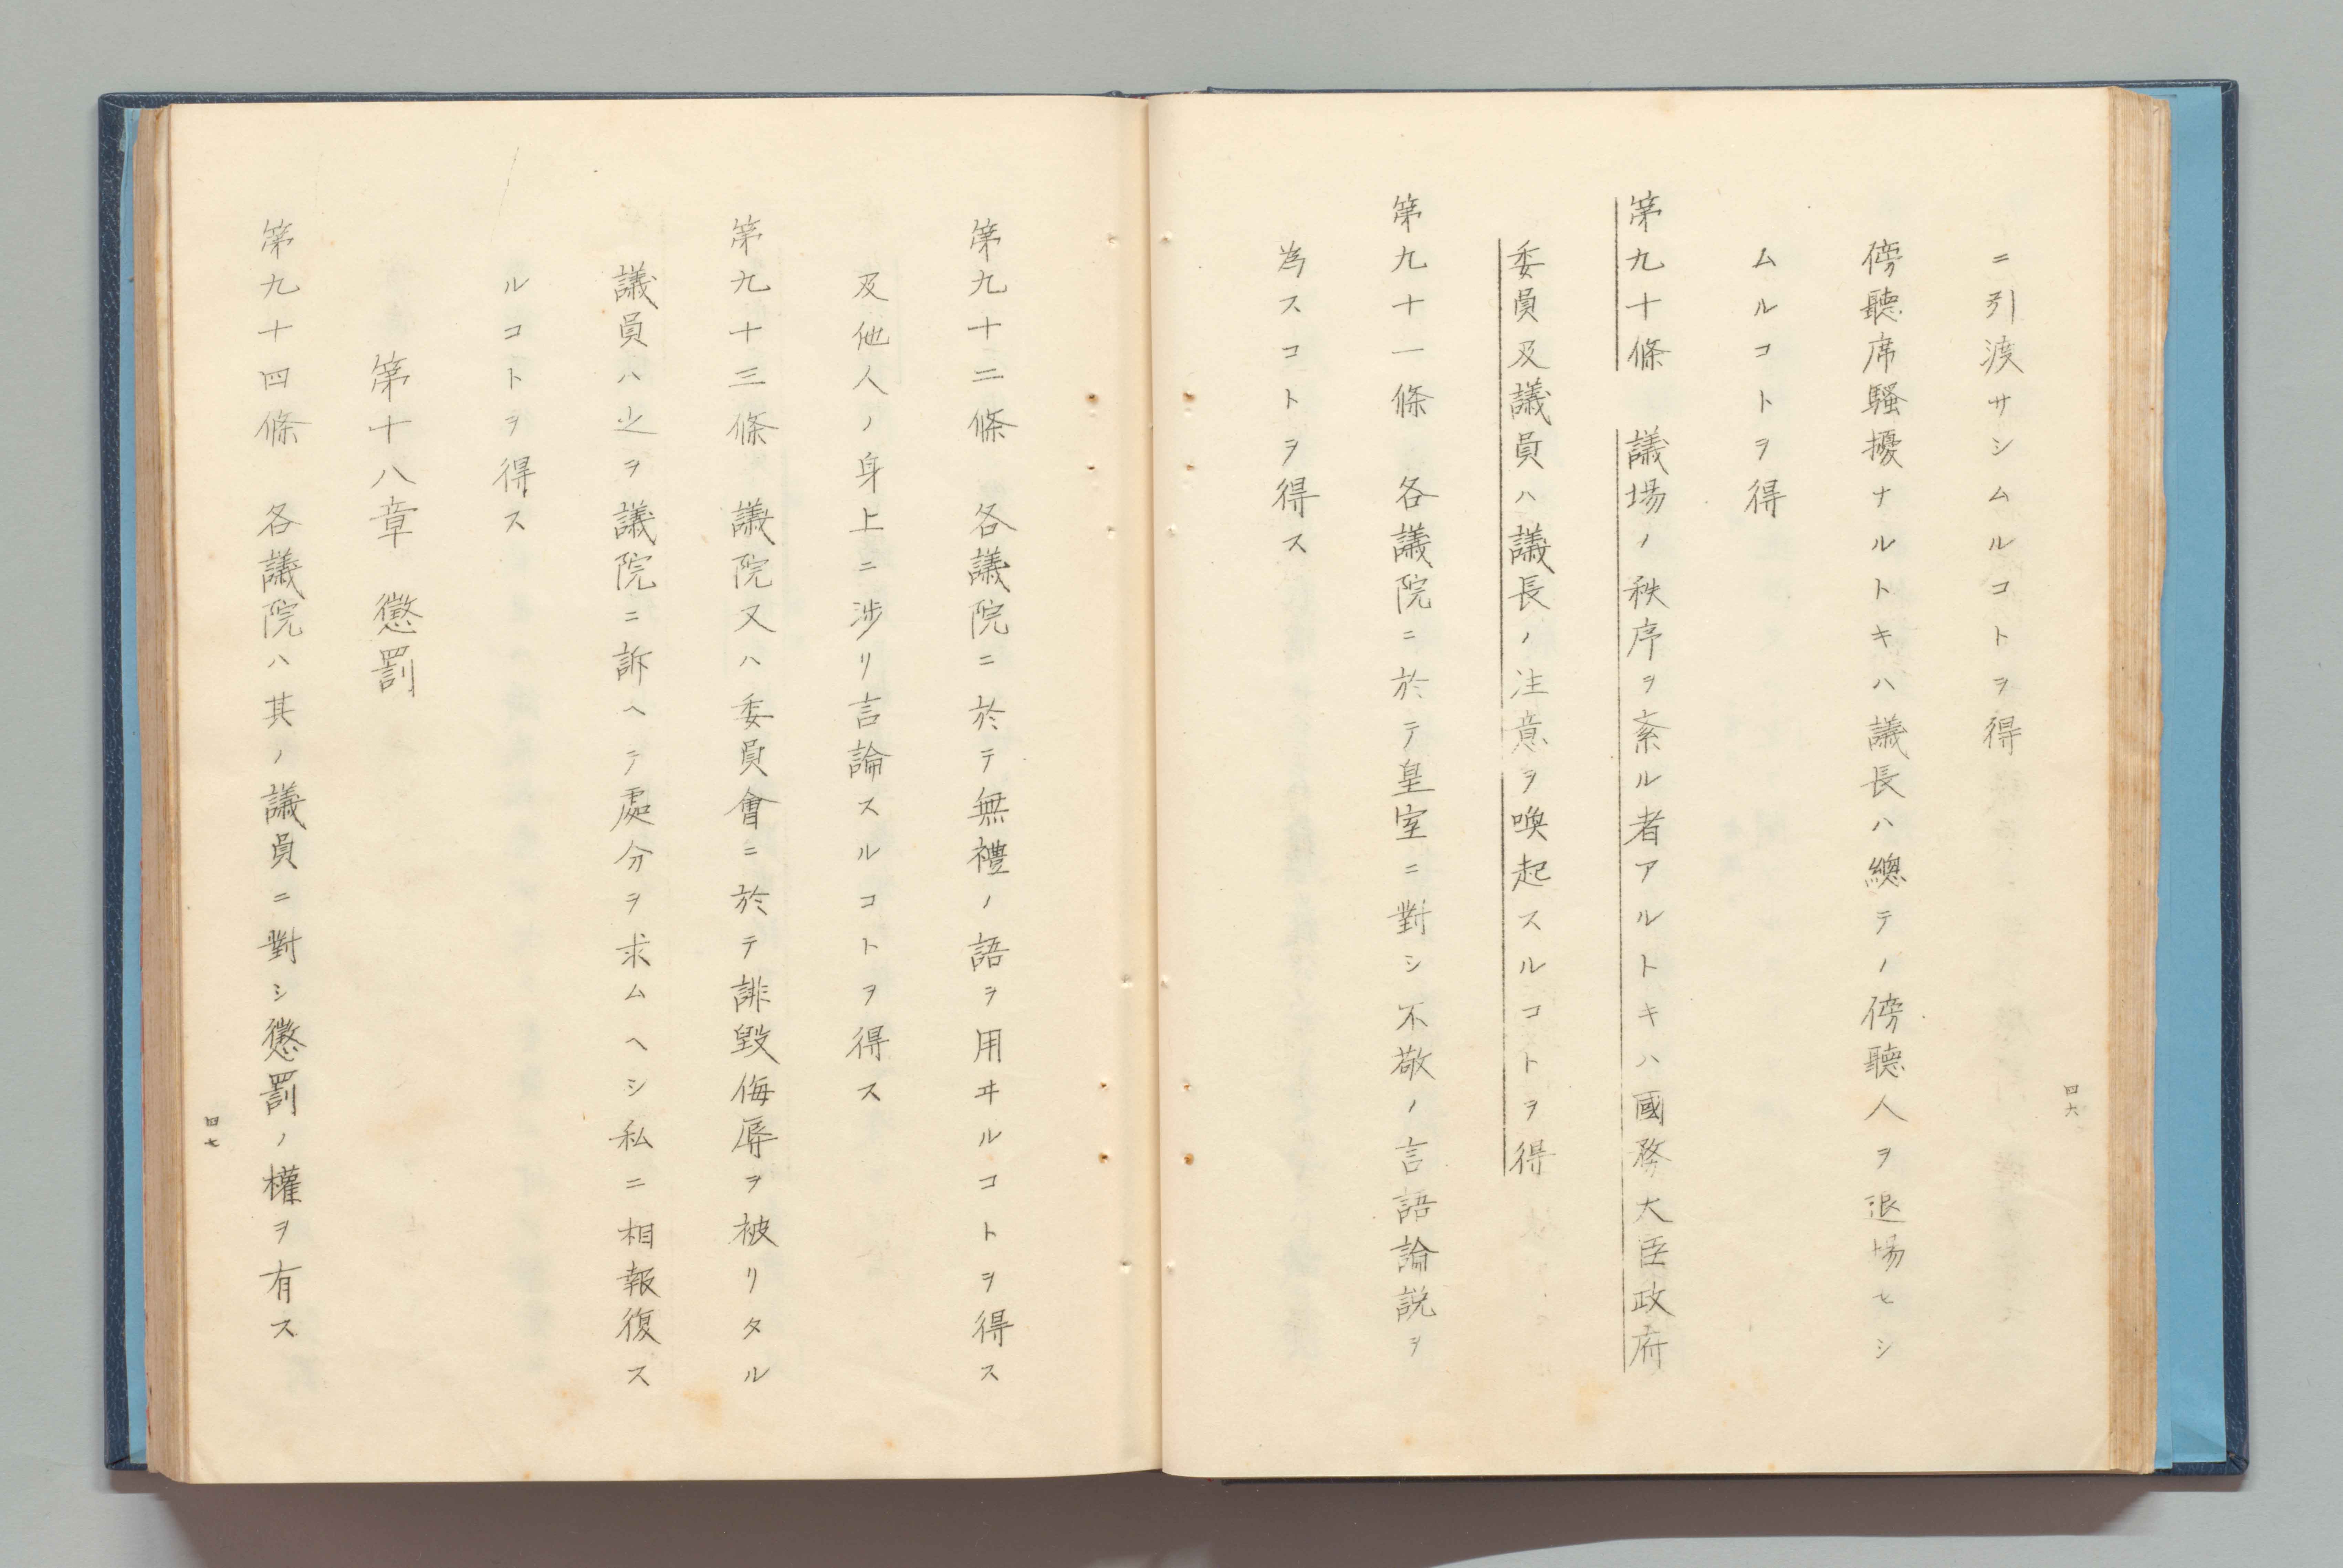 ニ引渡サシムルコトヲ得
傍聽席騷擾ナルトキハ議長ハ總テノ傍聽人ヲ退場セシ
ムルコトヲ得
第九十條　議場ノ秩序ヲ紊ル者アルトキハ國務大臣政府
委員及議員ハ議長ノ注意ヲ喚起スルコトヲ得
第九十一條　各議院ニ於テ皇室ニ對シ不敬ノ言語論説ヲ
為スコトヲ得ス
四六
第九十二條　各議院ニ於テ無禮ノ語ヲ用ヰルコトヲ得ス
及他人ノ身上ニ涉リ言論スルコトヲ得ス
第九十三條　議院又ハ委員會ニ於テ誹毀侮辱ヲ被リタル
議員ハ之ヲ議院ニ訴ヘテ處分ヲ求ムヘシ私ニ相報復ス
ルコトヲ得ス
第十八章　懲罰
第九十四條　各議院ハ其ノ議員ニ對シ懲罰ノ權ヲ有ス
四七